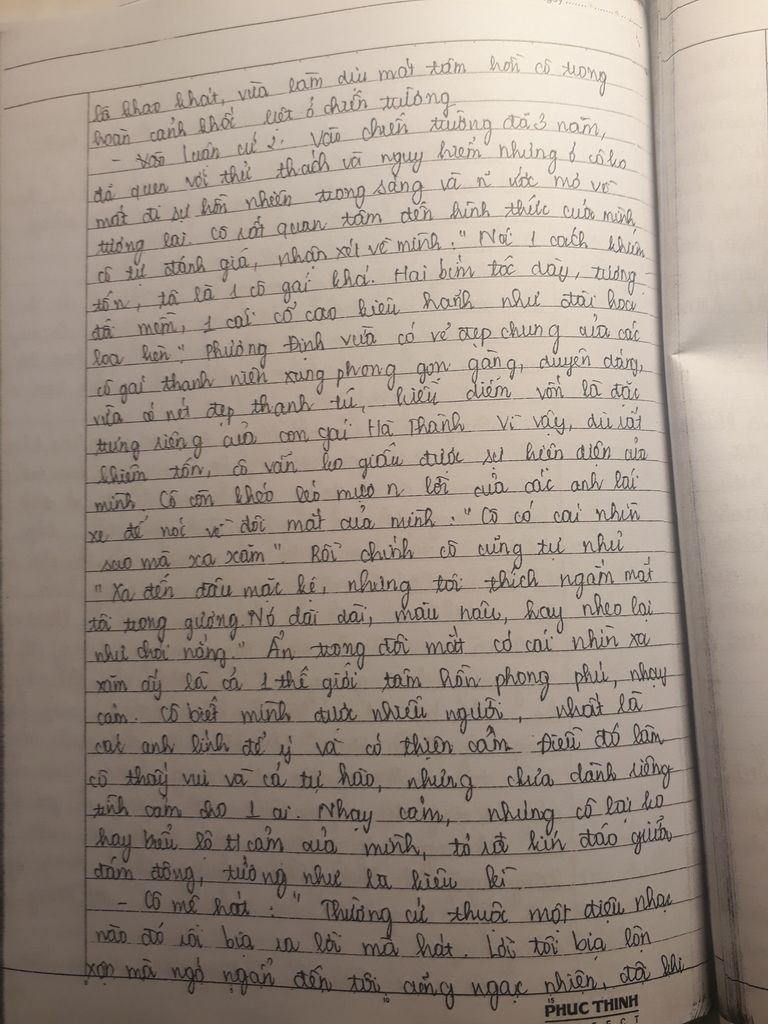 là khao khát, vừa làm dịu mát tâm hồn cô trong
hoàn cảnh khốc liệt ở chiến trường
- Vào luận cứ 2: Vào chiến trường đã 3 năm,
đã quen với thử thách và nguy hiểm nhưng ở cô ko
mất đi sự hồn nhiên trong sáng và n ước mơ về
tương lai. Cô rất quan tâm đến hình thức của mình,
cô tự đánh giá, nhận xét về mình: "Nói 1 cách khiêm
tốn, tôi là 1 cô gái khá. Hai bím tóc dày, tương
đối mềm, 1 cái cổ cao kiêu hãnh như đài hoa
loa kèn". Phương Định vừa có vẻ đẹp chung của các
cô gái thanh niên xung phong gọn gàng, duyên dáng,
vừa có nét đẹp thanh tú, kiều diễm vốn là đặc
trưng riêng của con gái Hà Thành. Vì vậy, dù rất
khiêm tốn, cô vẫn ko giấu được sự hiện diện của
mình. Cô còn khéo léo mượn n lời của các anh lái
xe để nói về đôi mắt của mình: "Cô có cái nhìn
sao mà xa xăm". Rồi chính cô cũng tự nhủ
"Xa đến đâu mặc kệ, nhưng tôi thích ngắm mắt
tôi trong gương. Nó dài dài, màu nâu, hay nheo lại
như chói nắng." Ẩn trong đôi mắt có cái nhìn xa
xăm ấy là cả 1 thế giới tâm hồn phong phú, nhạy
cảm. Cô biết mình được nhiều người, nhất là
các anh lính để ý và có thiện cảm. Điều đó làm
cô thấy vui và cả tự hào, nhưng chưa dành riêng
tình cảm cho 1 ai. Nhạy cảm, nhưng cô lại ko
hay biểu lộ t/cảm của mình, tỏ ra kín đáo giữa
đám đông, tưởng như là kiêu kì.
- Cô mê hát: "Thường cứ thuộc một điệu nhạc
nào đó rồi bịa ra lời mà hát. Lời tôi bịa lộn
xộn mà ngớ ngẩn đến tôi cũng ngạc nhiên, đôi khi
PHUC THINH